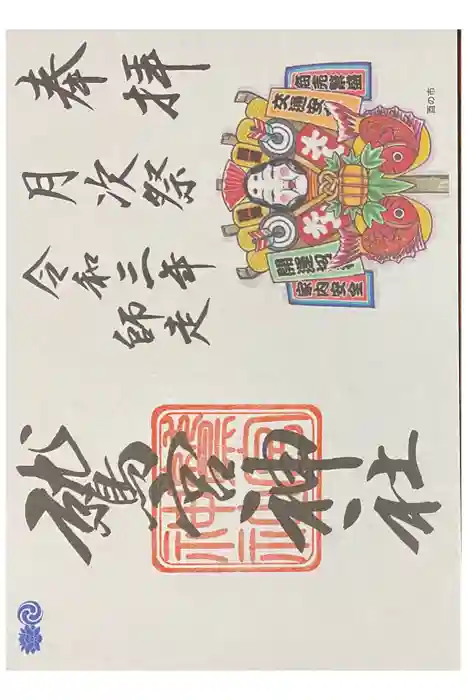 奉拝
月次祭
令和三年
師走
鷲宮神社
商売繁盛
交通安
開運
家内安全
酉の市